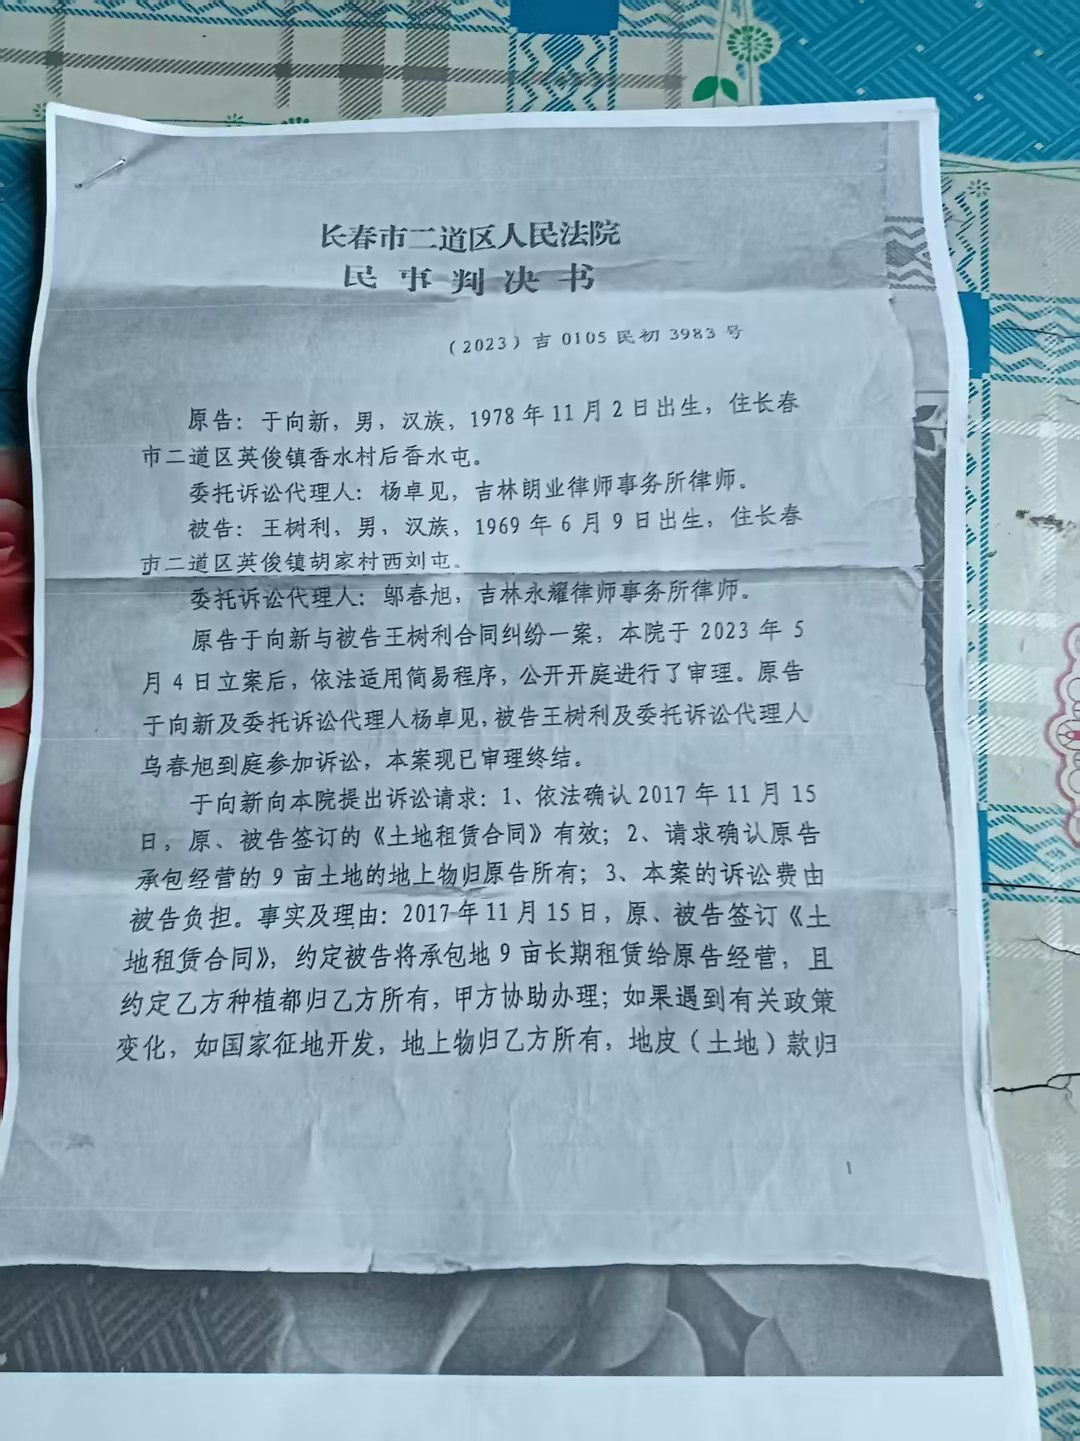 长春市二道区人民法院
民事判决书
（2023）吉0105民初3983号
原告：于向新，男，汉族，1978年11月2日出生，住长春
市二道区英俊镇香水村后香水屯。
委托诉讼代理人：杨卓见，吉林朗业律师事务所律师。
被告：王树利，男，汉族，1969年6月9日出生，住长春
市二道区英俊镇胡家村西刘屯。
委托诉讼代理人：邬春旭，吉林永耀律师事务所律师。
原告于向新与被告王树利合同纠纷一案，本院于2023年5
月4日立案后，依法适用简易程序，公开开庭进行了审理。原告
于向新及委托诉讼代理人杨卓见，被告王树利及委托诉讼代理人
乌春旭到庭参加诉讼，本案现已审理终结。
于向新向本院提出诉讼请求：1、依法确认2017年11月15
日，原、被告签订的《土地租赁合同》有效；2、请求确认原告
承包经营的9亩土地的地上物归原告所有；3、本案的诉讼费由
被告负担。事实及理由：2017年11月15日，原、被告签订《土
地租赁合同》，约定被告将承包地9亩长期租赁给原告经营，且
约定乙方种植都归乙方所有，甲方协助办理；如果遇到有关政策
变化，如国家征地开发，地上物归乙方所有，地皮（土地）款归
1